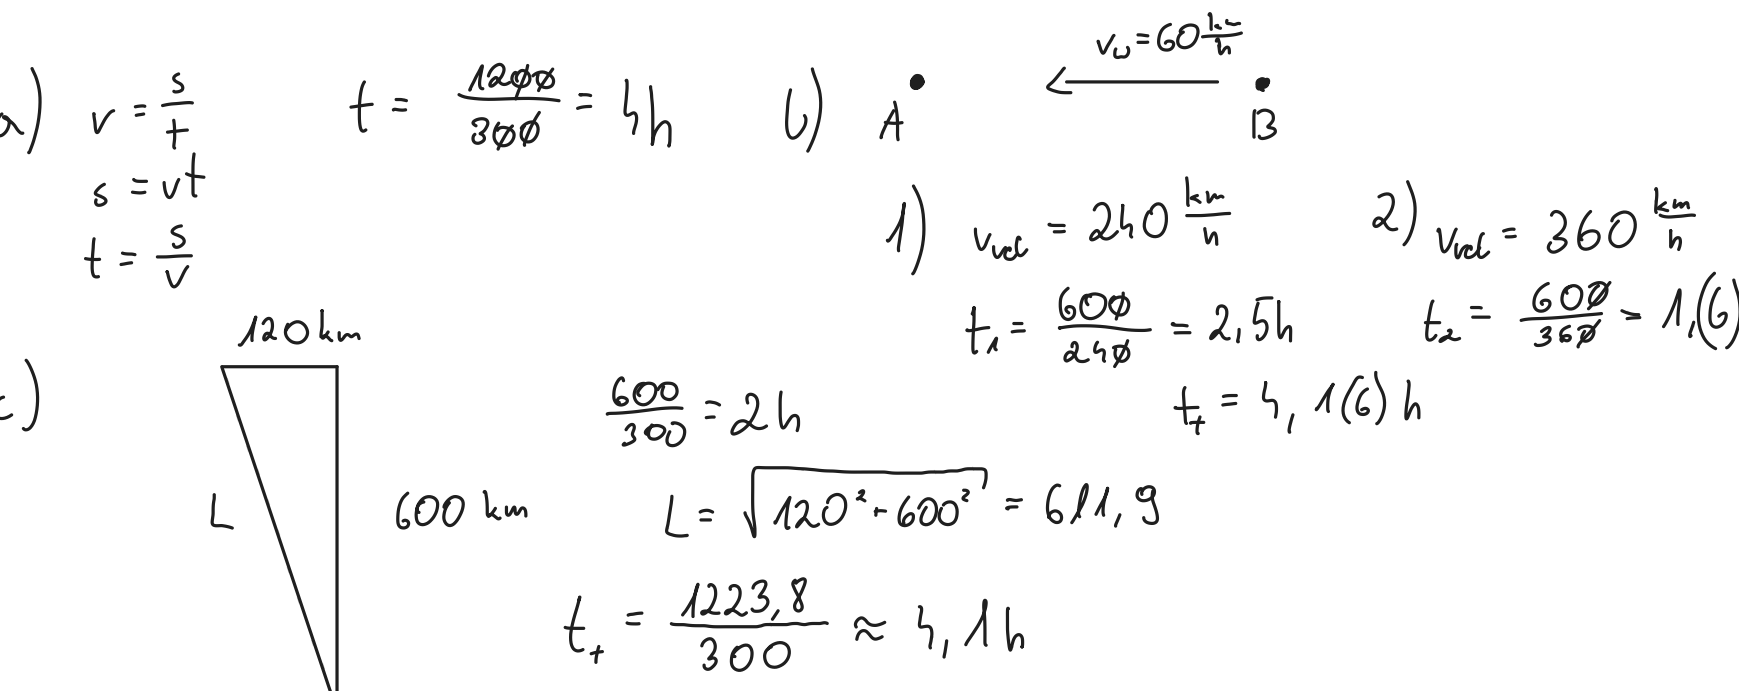 a) v = s/t
s = vt
t = s/v
t = 1200/300 = 4h
b) A B
v_w = 60 km/h
1) v_wel = 240 km/h
t_1 = 600/240 = 2,5h
2) v_wel = 360 km/h
t_2 = 600/360 = 1,(6)
t_t = 4,1(6) h
c) 120 km
L
600 km
600/300 = 2h
L = √(120² + 600²) = 611,9
t_t = 1223,8/300 ≈ 4,1h